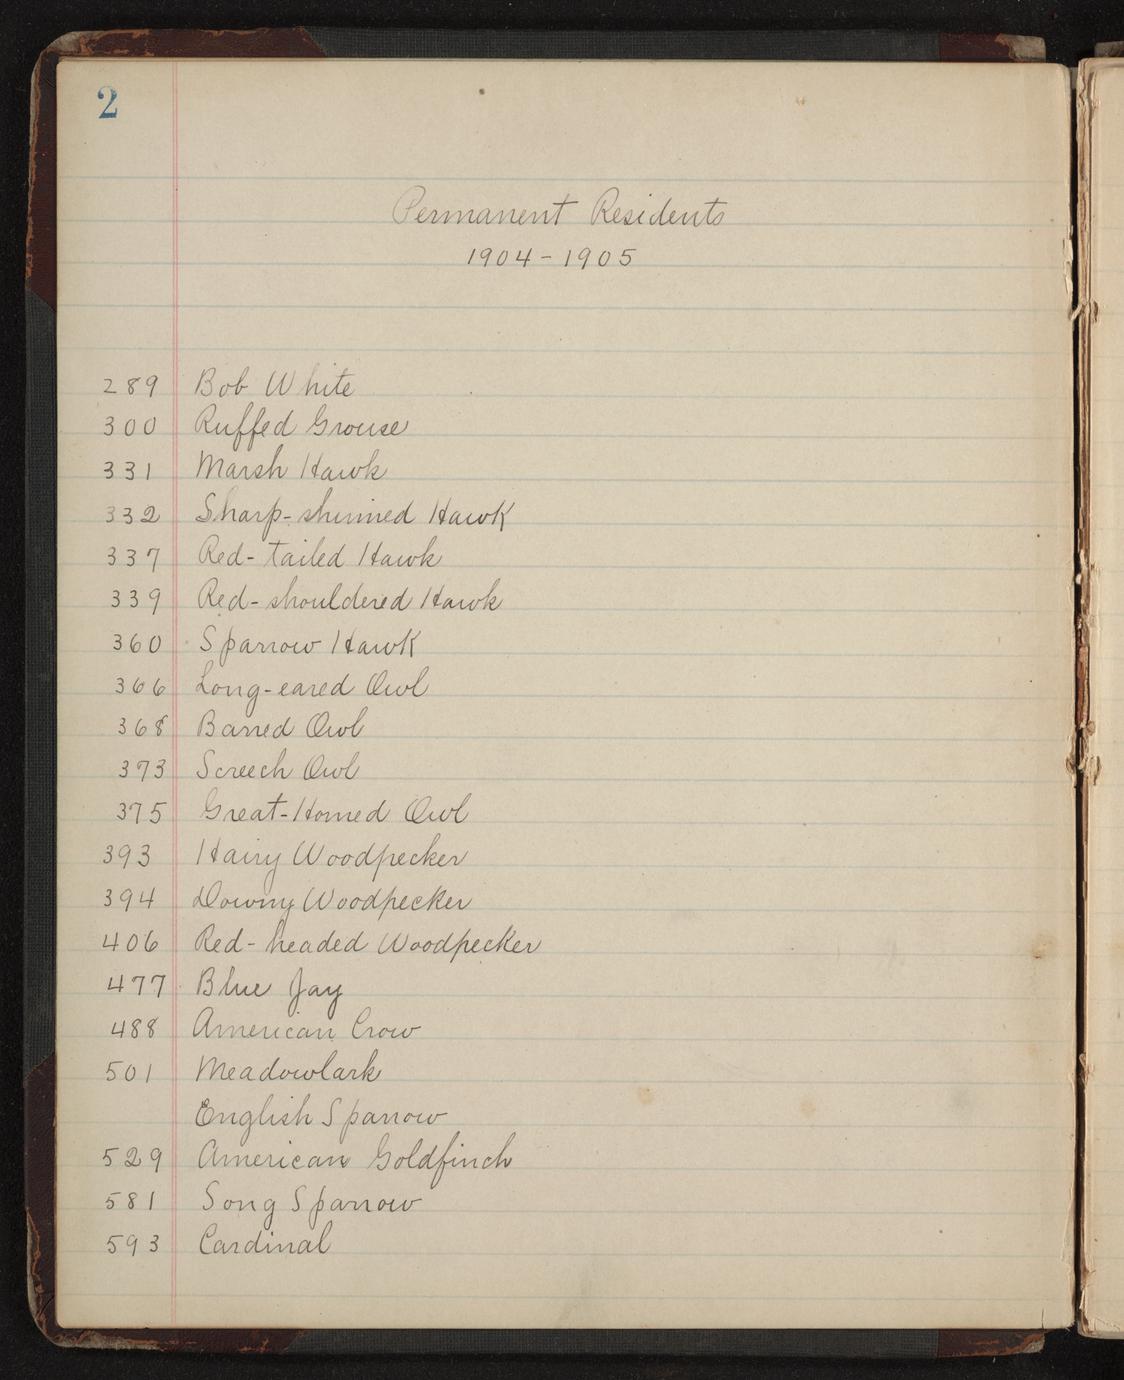 2
Permanent Residents
1904-1905
289 Bob White
300 Ruffed Grouse
331 Marsh Hawk
332 Sharp-shinned Hawk
337 Red-tailed Hawk
339 Red-shouldered Hawk
360 Sparrow Hawk
366 Long-eared Owl
368 Barred Owl
373 Screech Owl
375 Great-Horned Owl
393 Hairy Woodpecker
394 Downy Woodpecker
406 Red-headed Woodpecker
477 Blue Jay
488 American Crow
501 Meadowlark
English Sparrow
529 American Goldfinch
581 Song Sparrow
593 Cardinal